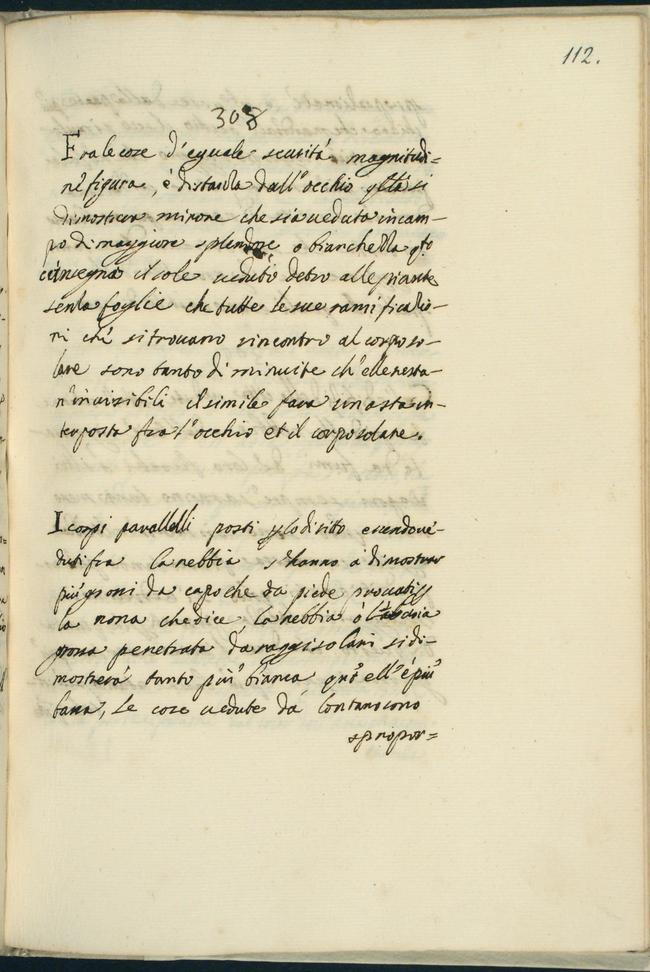 112.
308
Fra le cose d'equale scurità magnitudi=
ne figura, è distantia dall'occhio q̃lla si
dimostrera minore che sia ueduta in cam-
po di maggiore splendore o bianchezza q̃to
c'insegna il sole ueduto detro alle piante
senza foglie che tutte le sue ramificatio-
ni ché si trouano sincontro al corpo so-
lare sono tanto diminuite ch'elle resta-
n'inuisibili il simile fara un asta in-
terposta fra l'occhio et il corpo solare.
I corpi paralleli posti p lo diritto essendo ue-
duti fra la nebbia s'hanno à dimostrar
più grossi da capo che da piede prouasi p
la nona che dice, la nebbia ò l'
grossa penetrata da raggi solari si di-
mostrerà tanto più bianca qnt'ell'è più
bassa, Le cose uedute da lontano sono
spropor=